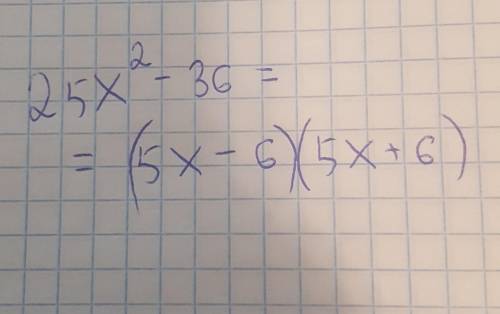 25x² - 36 =
= (5x - 6)(5x + 6)